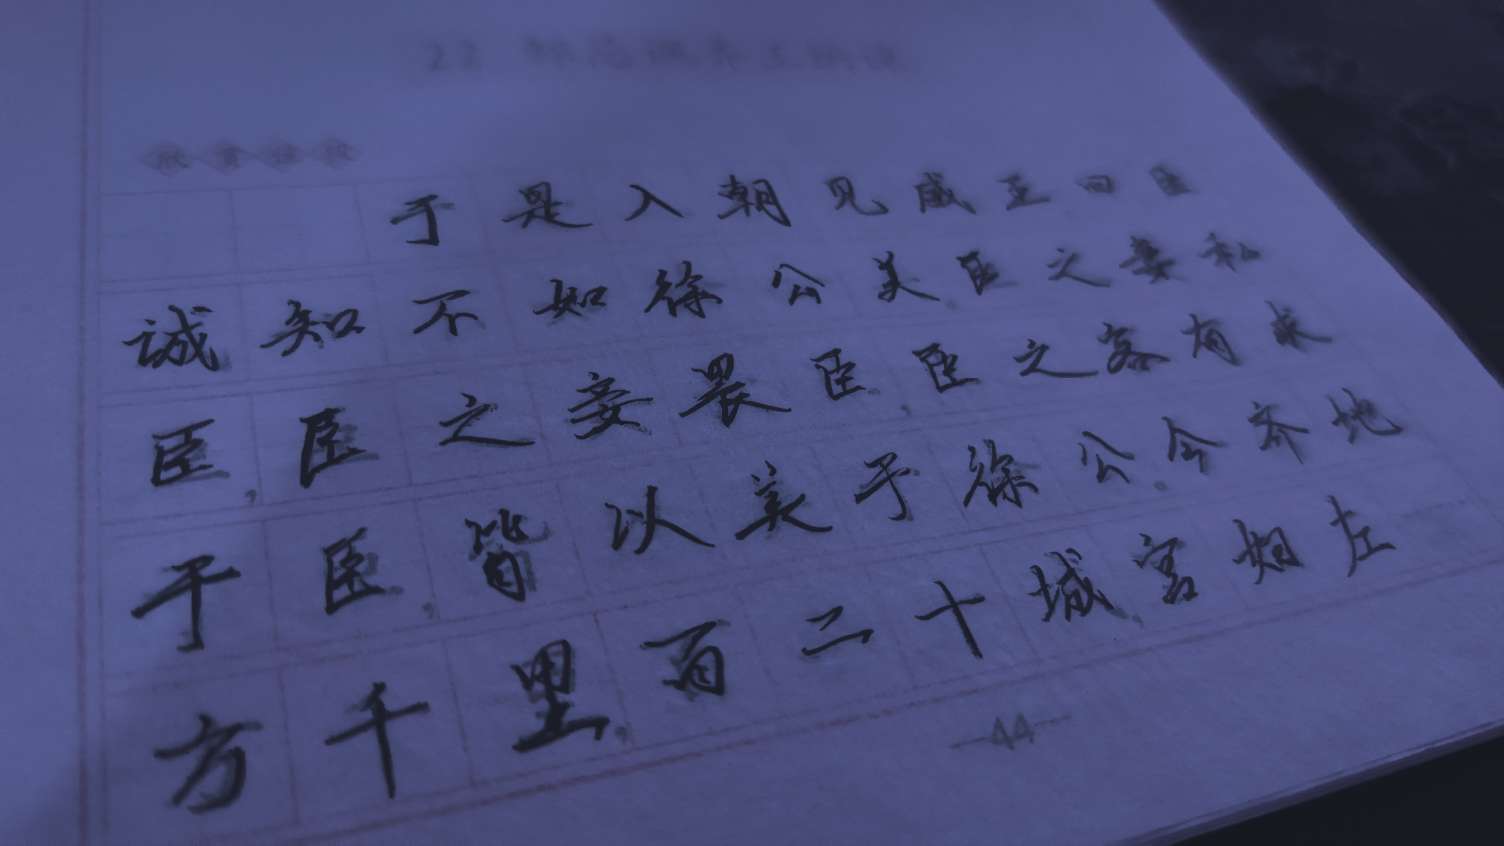 22 邹忌讽齐王纳谏
于是入朝见威王曰臣
诚知不如徐公美。臣之妻私
臣，臣之妾畏臣，臣之客有求
于臣，皆以美于徐公。今齐地
方千里，百二十城。宫妇左
—44—